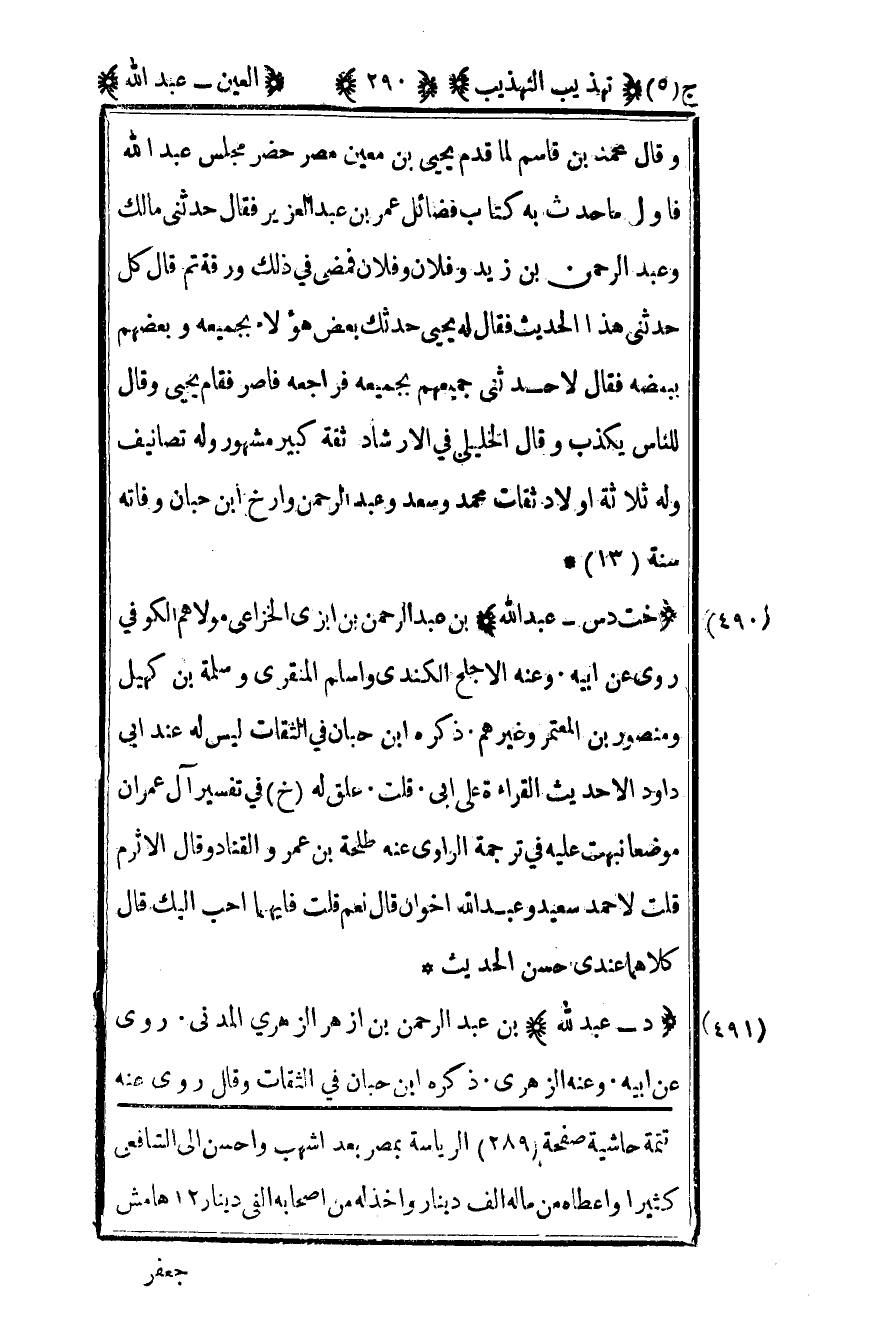 ج(٥) ﴿ تهذيب التهذيب ﴾ ﴿ ٢٩٠ ﴾ ﴿ العين ـ عبد الله ﴾
و قال محمد بن قاسم لما قدم يحيى بن معين مصر حضر مجلس عبد الله
فاول ماحدث به كتاب فضائل عمر بن عبدالعزيز فقال حدثنى مالك
وعبد الرحمن بن زيد و فلان وفلان فمضى فى ذلك ورقة تم قال كل
حدثنى هذا الحديث فقال له يحيى حدثك بعض هؤلاء بجميعه و بعضهم
ببعضه فقال لا حدثنى جميعهم بجميعه فراجعه فاصر فقام يحيى وقال
للناس يكذب و قال الخليلي في الارشاد ثقة كبير مشهور وله تصانيف
وله ثلاثة اولاد ثقات محمد وسعد وعبد الرحمن وارخ ابن حبان وفاته
سنة (١٣) *
(٤٩٠) ﴿ خت دس ـ عبدالله ﴾ بن عبدالرحمن بن ابزى الخزاعى مولاهم الكوفي
روى عن ابيه ٠ وعنه الاجلح الكندى واسلم المنقرى و سلمة بن كهيل
ومنصور بن المعتمر وغيرهم ٠ ذكره ابن حبان في الثقات ليس له عند ابى
داود الاحديث القراءة على ابى ٠ قلت ٠ علق له (خ) في تفسير آل عمران
موضعا نبهت عليه في ترجمة الراوى عنه طلحة بن عمر و القناد وقال الاثرم
قلت لاحمد سعيد وعبدالله اخوان قال نعم قلت فايهما احب اليك قال
كلاهما عندى حسن الحديث *
(٤٩١) ﴿ د ـ عبدلله ﴾ بن عبد الرحمن بن ازهر الزهري المدنى ٠ روى
عن ابيه ٠ وعنه الزهرى ٠ ذكره ابن حبان في الثقات وقال روى عنه
تتمة حاشية صفحة (٢٨٩) الرياسة بمصر بعد اشهب واحسن الى الشافعى
كثيرا واعطاه من ماله الف دينار واخذله من اصحابه الفى دينار ١٢ هامش
جعفر